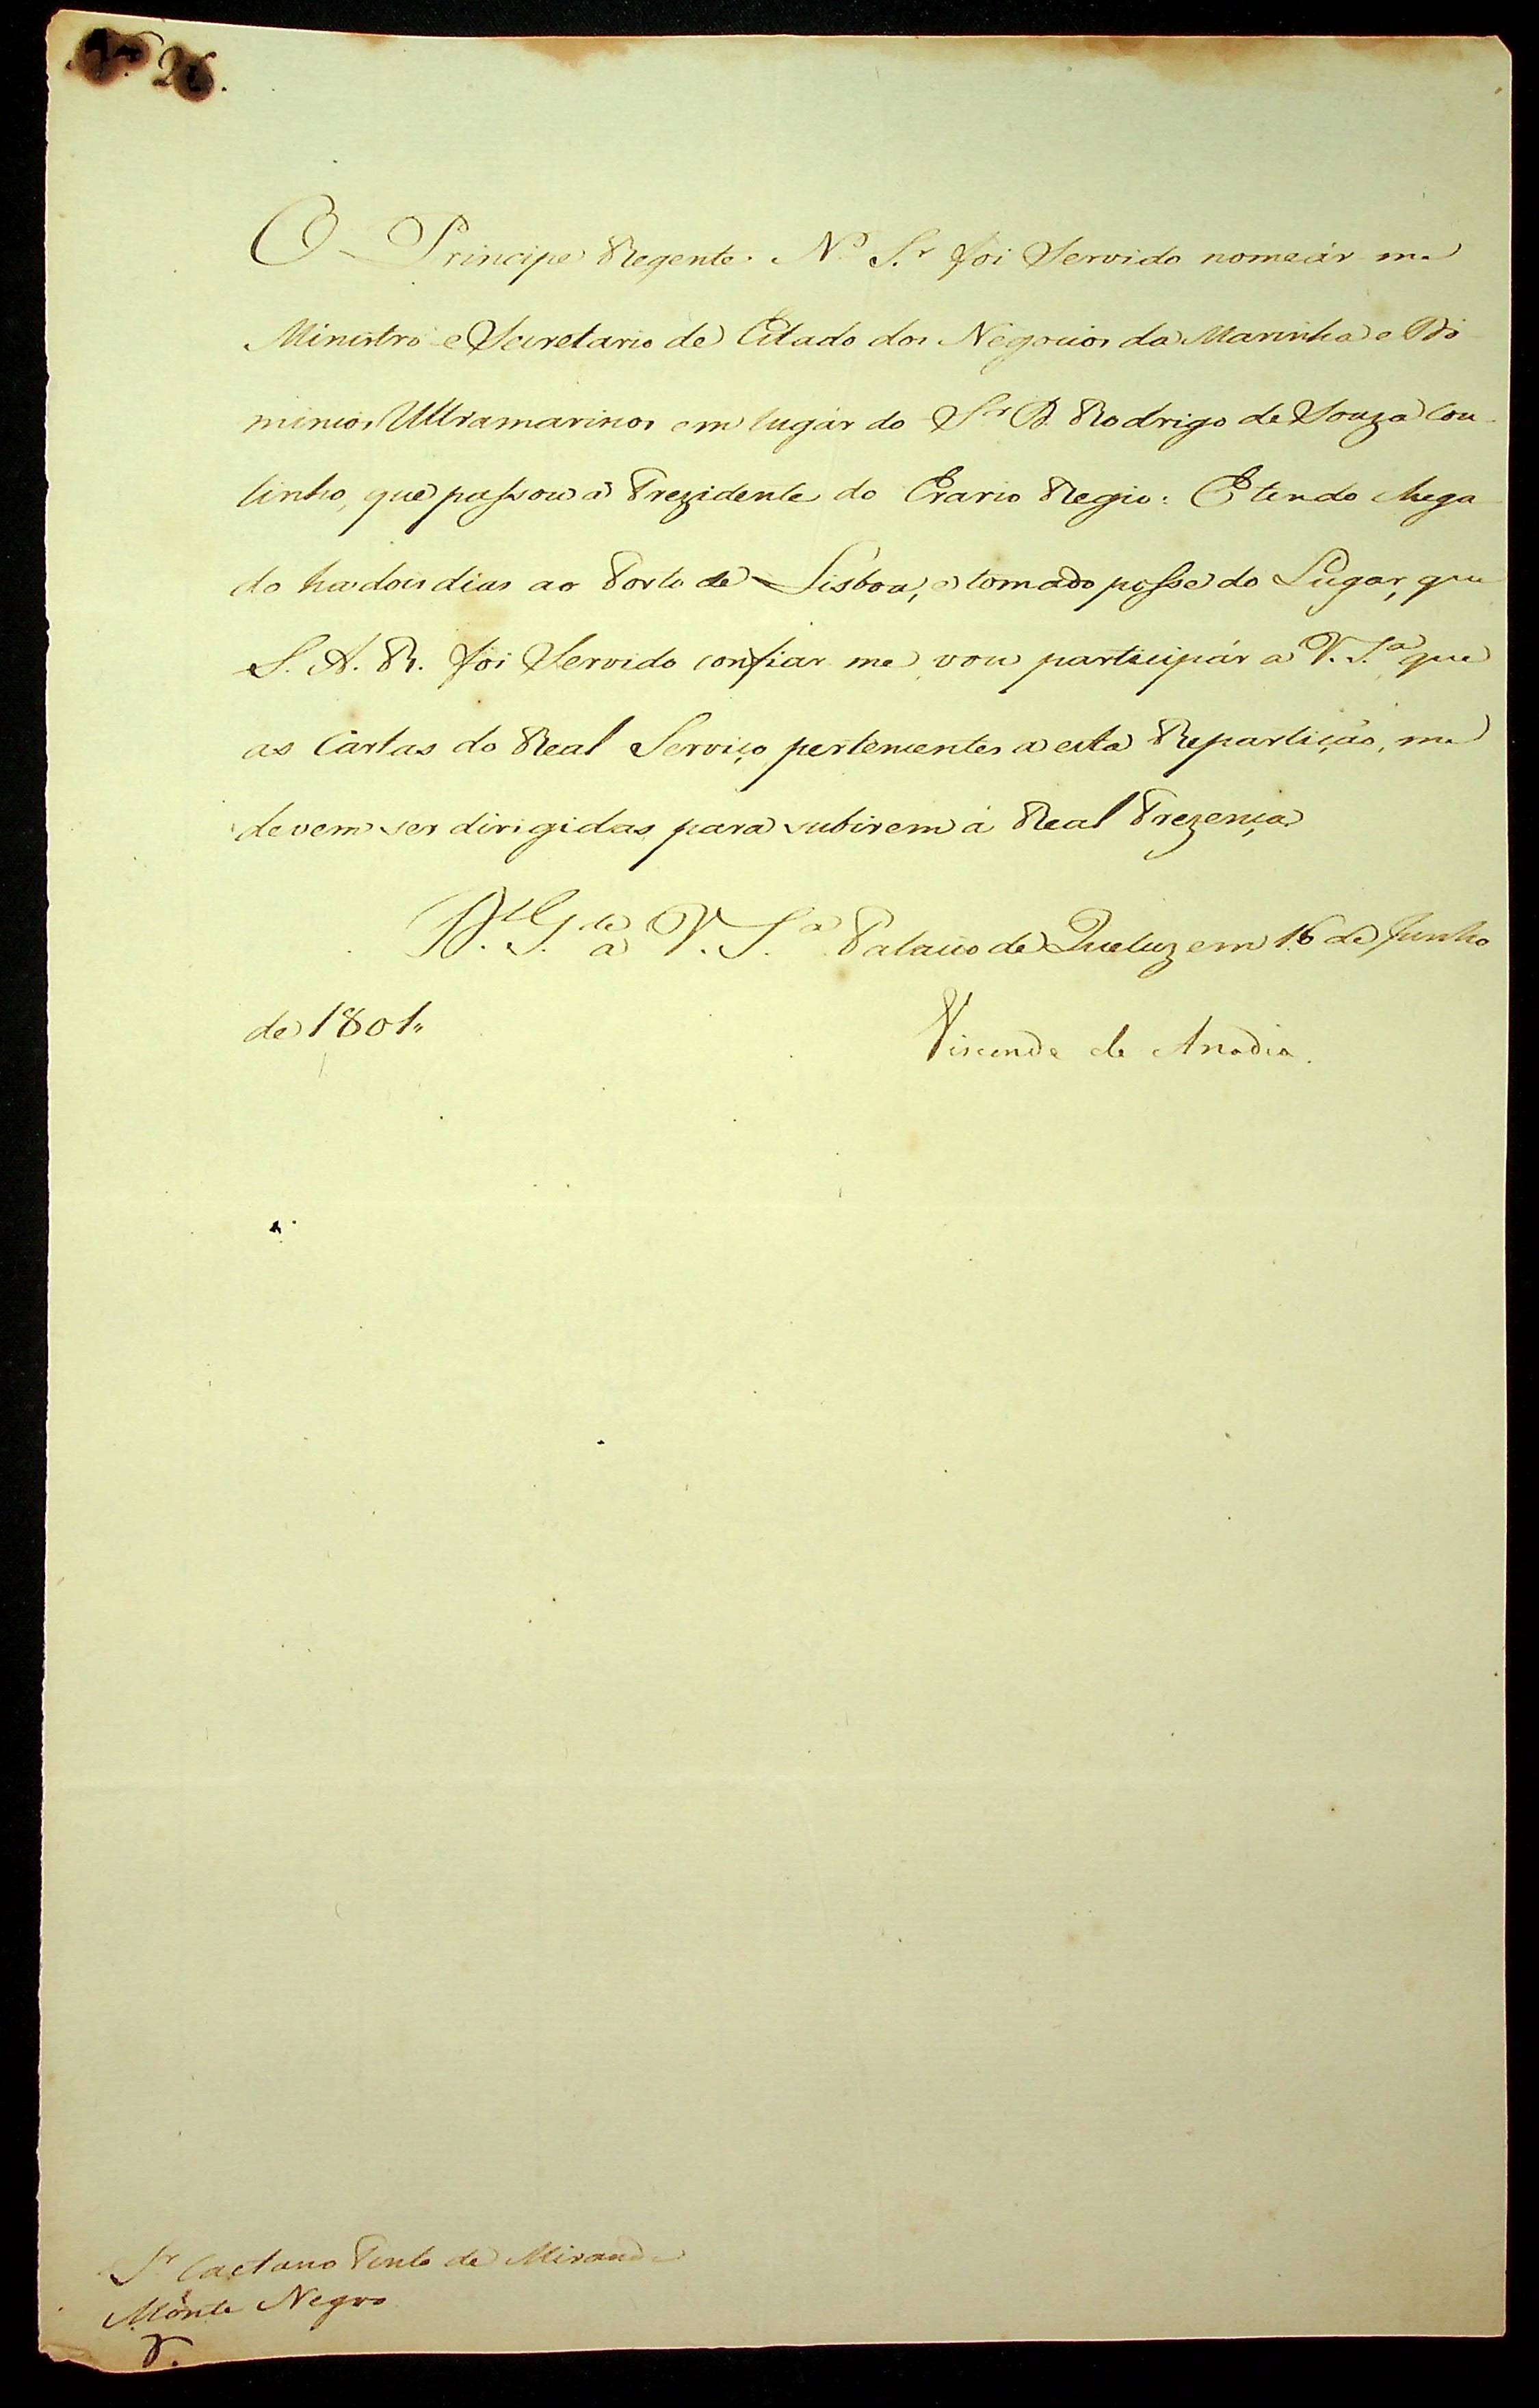 N.º 26.
O Principe Regente N.º S.r foi Servido nomeár me
Ministro e Secretario de Estado dos Negocios da Marinha e Do
minios Ultramarinos em lugár do S.r D. Rodrigo de Souza Cou
tinho, que passou a Prezidente do Erario Regio: E tendo chega
do ha dois dias ao Porto de Lisboa, e tomado posse do Lugar, que
S. A. R. foi Servido confiar me, vou participár a V. S.ª que
as Cartas do Real Serviço, pertencentes a esta Repartição, me
devem ser dirigidas para subirem á Real Prezença.
D.s G.de a V. S.ª Palacio de Queluz em 16 de Junho
de 1801.
Visconde de Anadia.
S.r Caetano Pinto de Miranda
Monte Negro